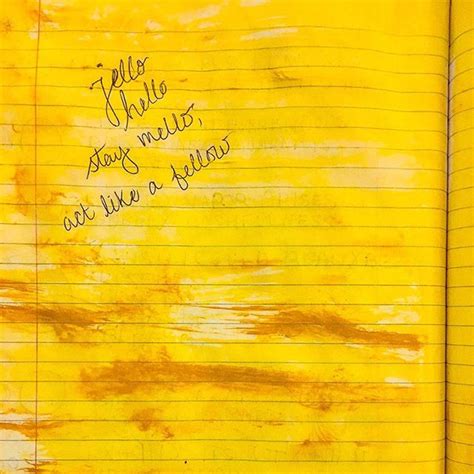 jello
hello
stay mello,
act like a fellow